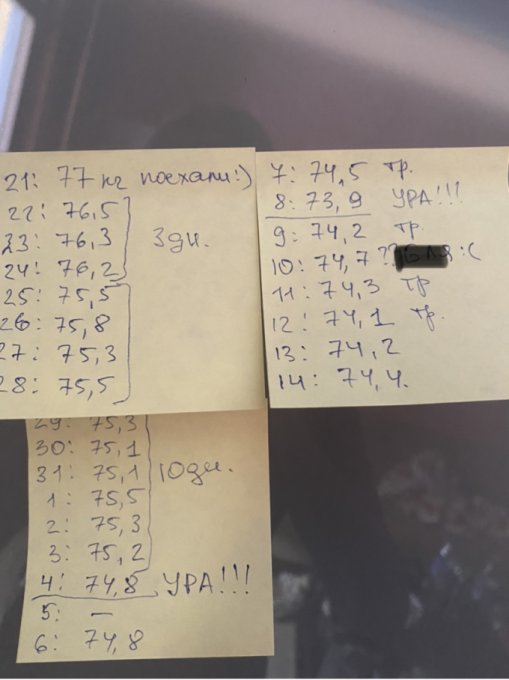 21: 77 кг поехали:)
22: 76,5
23: 76,3 3 дн.
24: 76,2
25: 75,5
26: 75,8
27: 75,3
28: 75,5
29: 75,3
30: 75,1
31: 75,1 10 дн.
1: 75,5
2: 75,3
3: 75,2
4: 74,8 УРА!!!
5: –
6: 74,8
7: 74,5 тр.
8: 73,9 УРА!!!
9: 74,2 тр.
10: 74,7 ?? :(
11: 74,3 тр
12: 74,1 тр.
13: 74,2
14: 74,4.